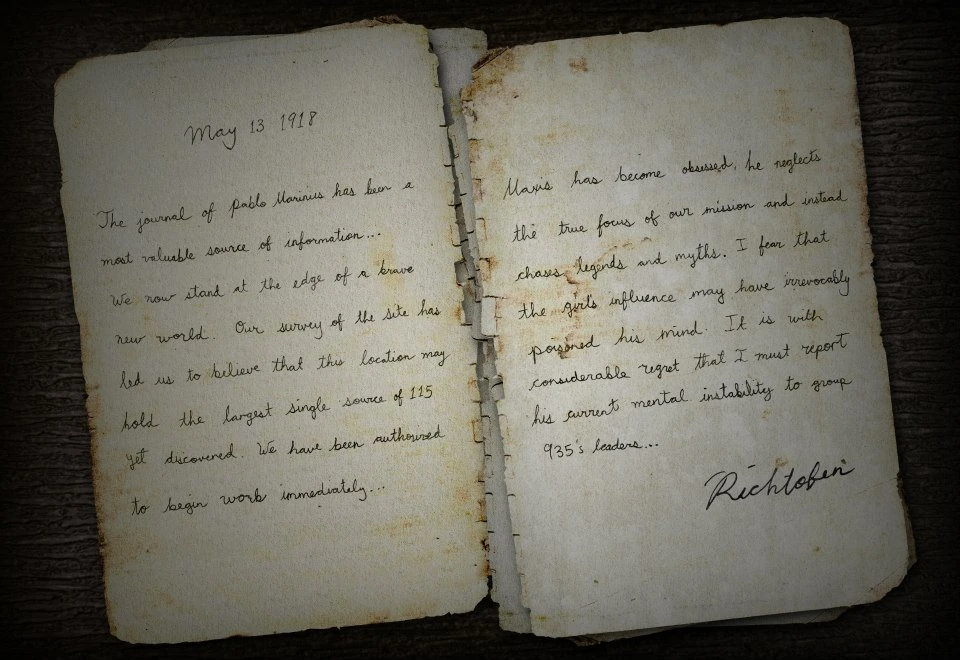 May 13 1918
The journal of Pablo Marinus has been a
most valuable source of information...
We now stand at the edge of a brave
new world. Our survey of the site has
led us to believe that this location may
hold the largest single source of 115
yet discovered. We have been authorized
to begin work immediately...
Maxis has become obsessed, he neglects
the true focus of our mission and instead
chases legends and myths. I fear that
the girl's influence may have irrevocably
poisoned his mind. It is with
considerable regret that I must report
his current mental instability to group
935's leaders...
Richtofen